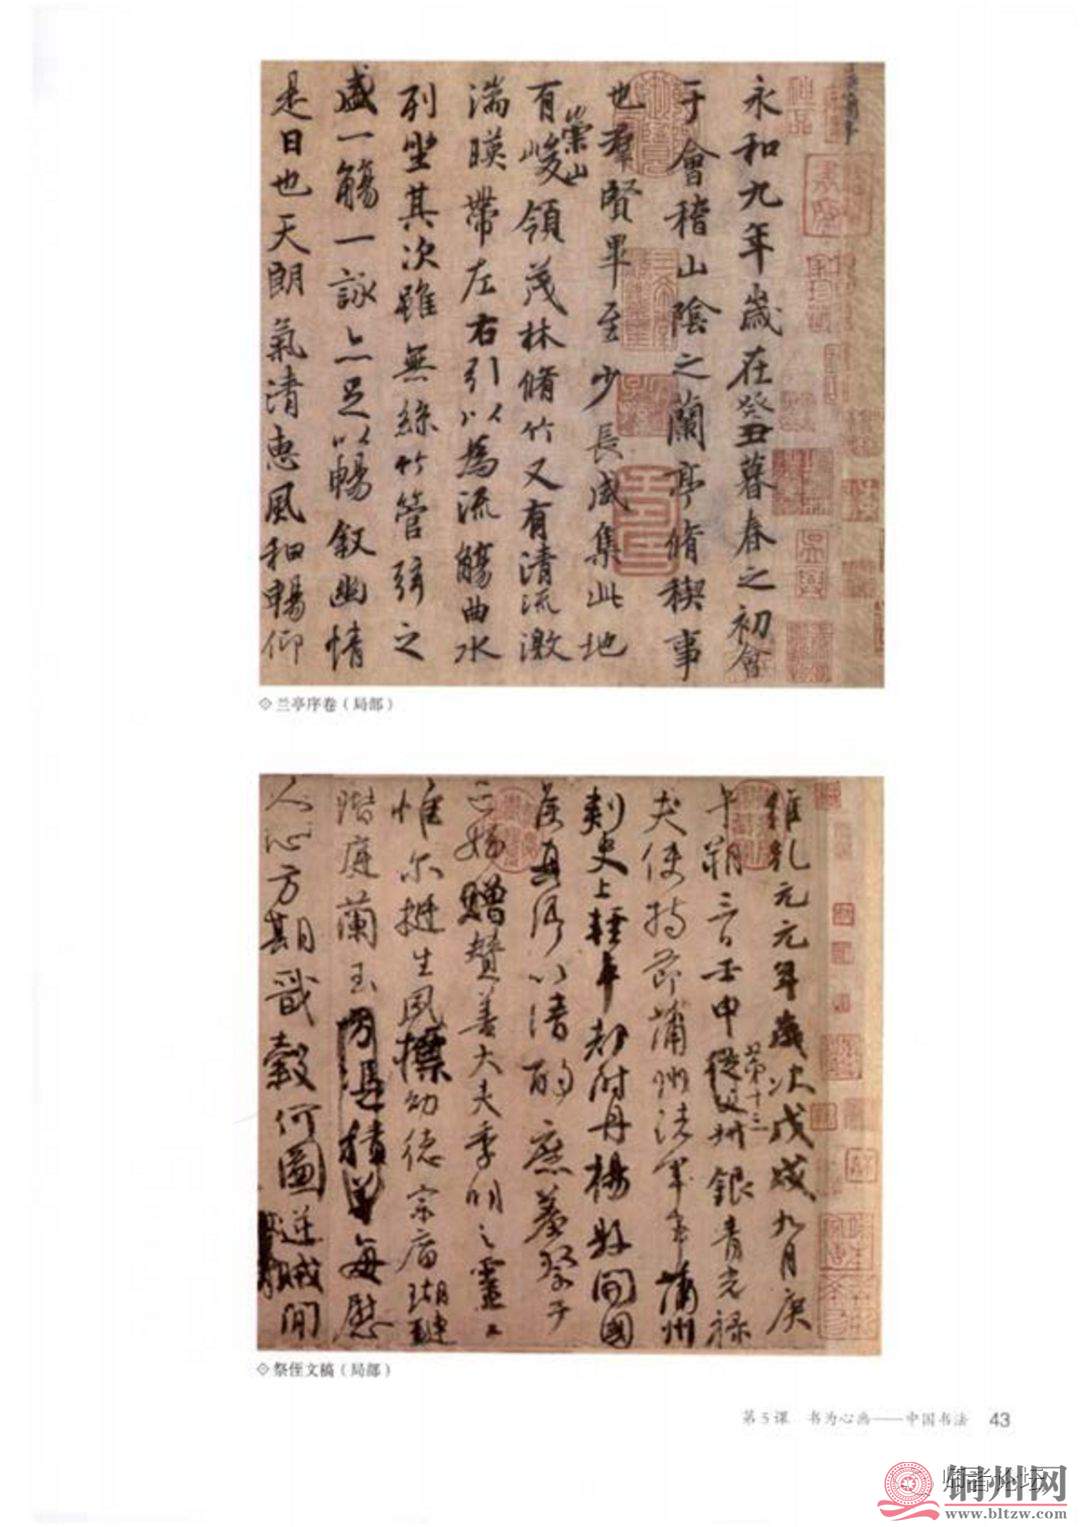 永和九年歲在癸丑暮春之初會
于會稽山陰之蘭亭脩稧事
也羣賢畢至少長咸集此地
有崇山峻領茂林脩竹又有清流激
湍暎帶左右引以為流觴曲水
列坐其次雖無絲竹管弦之
盛一觴一詠亦足以暢敘幽情
是日也天朗氣清惠風和暢仰
兰亭序卷（局部）
維乾元元年歲次戊戌九月庚
午朔三日壬申第十三從父州銀青光祿
夫使持節蒲州諸軍事蒲州
刺史上輕車都尉丹楊縣開國
侯真卿以清酌庶羞祭于
亡姪贈贊善大夫季明之靈
惟爾挺生夙標幼德宗廟瑚璉
階庭蘭玉每慰
人心方期戩穀何圖逆賊閒
祭侄文稿（局部）
第5课 书为心画——中国书法 43
师者论坛
铜州网
www.bltzw.com